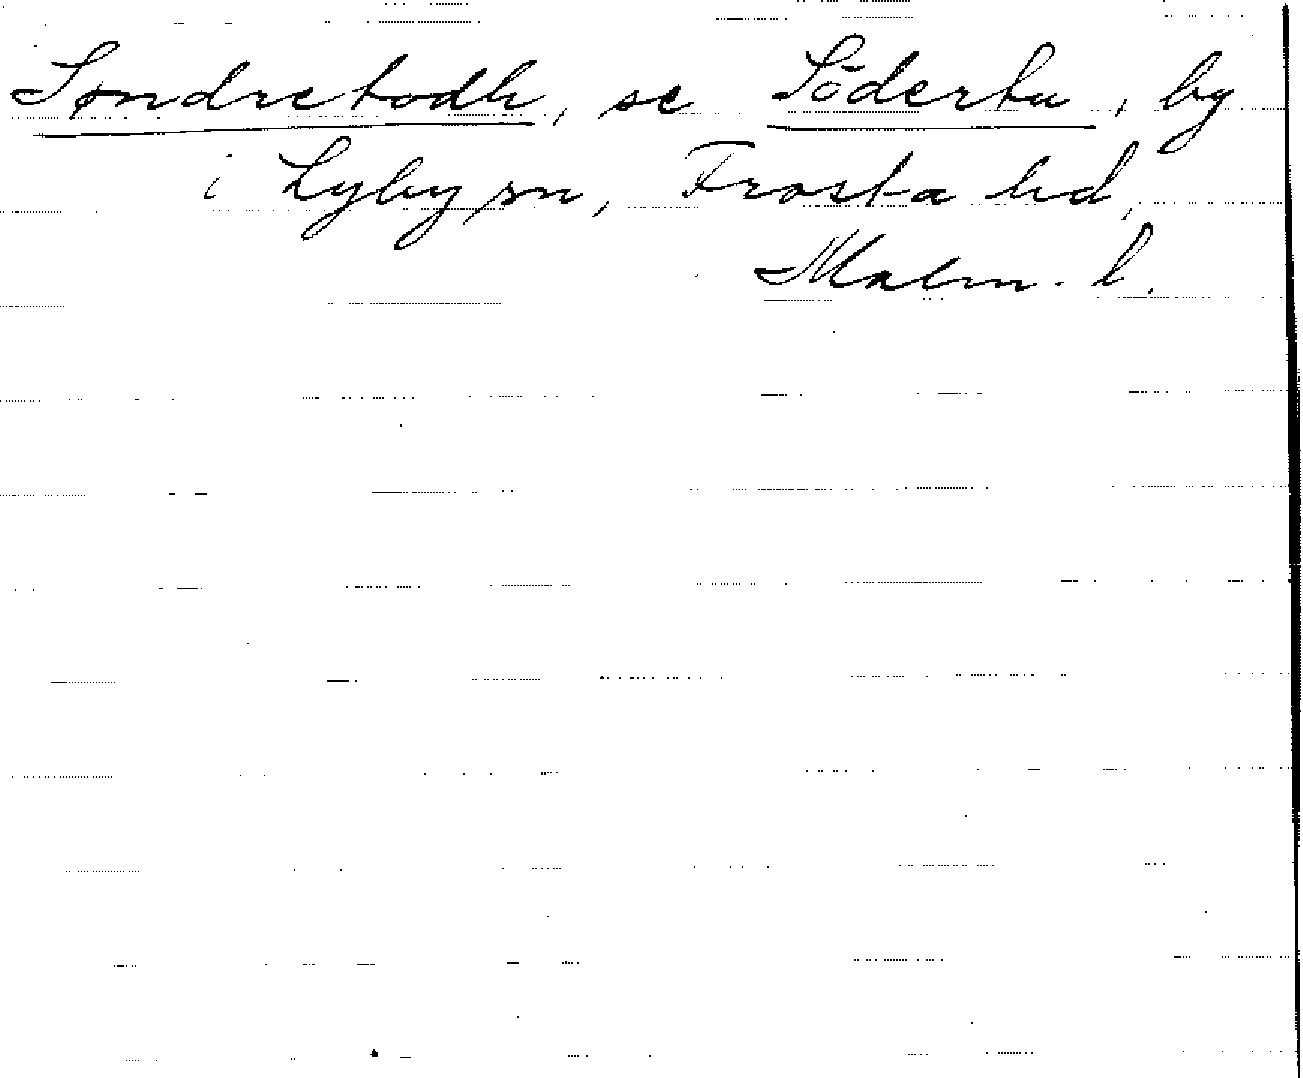 Søndretodh, se Södertu, by
i Lyby sn, Frosta hd,
Malm. l.